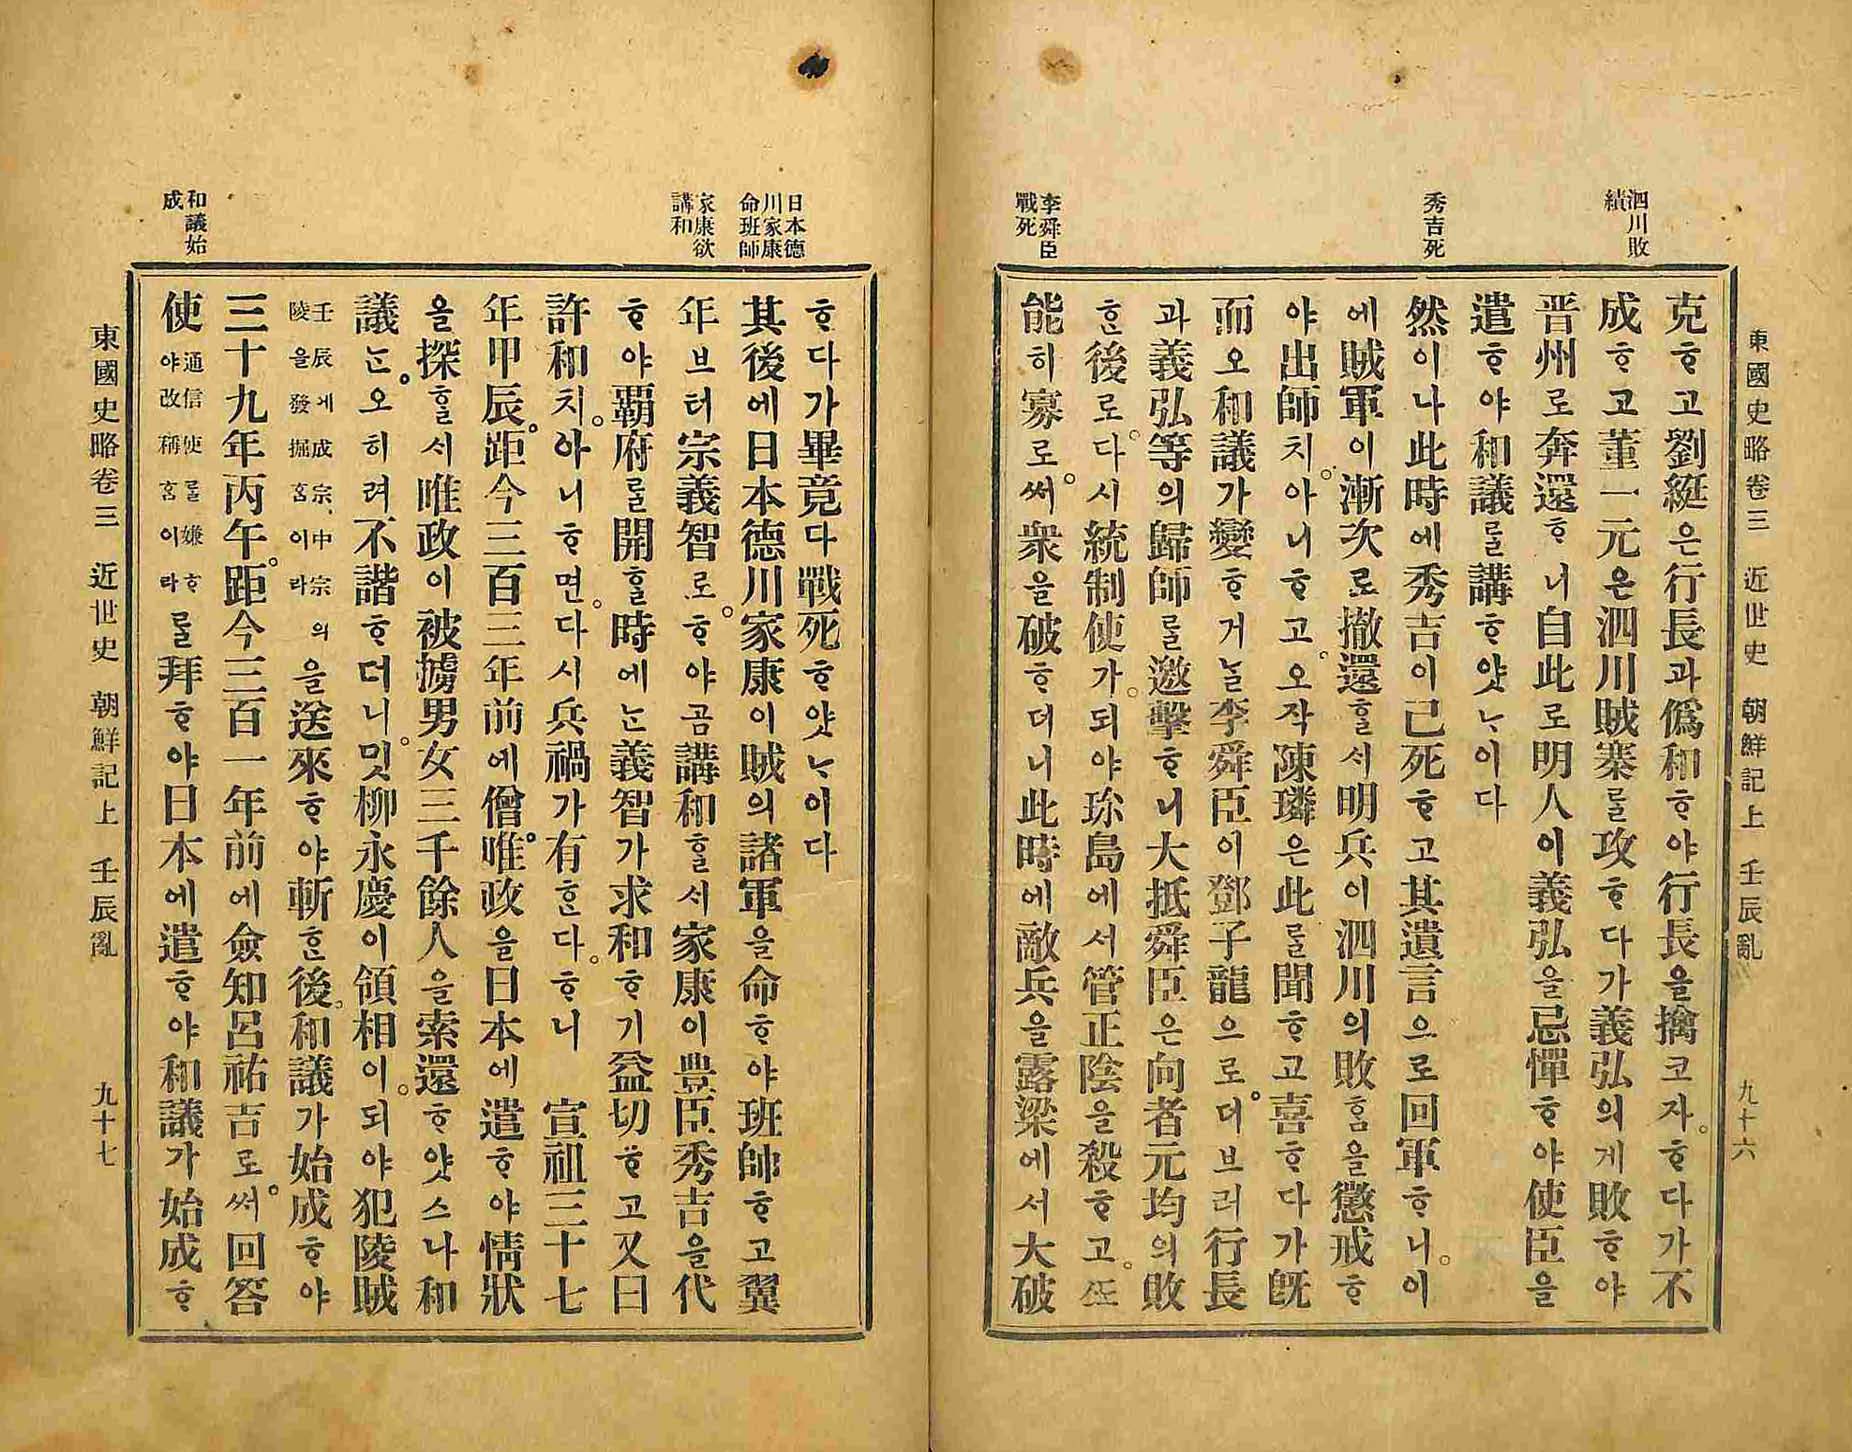 東國史略卷三 近世史 朝鮮記上 壬辰亂 九十六
泗川敗
績
秀吉死
李舜臣
戰死
克ᄒᆞ고劉綎은行長과僞和ᄒᆞ야行長을擒코자ᄒᆞ다가不
成ᄒᆞ고董一元은泗川賊寨ᄅᆞᆯ攻ᄒᆞ다가義弘의게敗ᄒᆞ야
晋州로奔還ᄒᆞ니自此로明人이義弘을忌憚ᄒᆞ야使臣을
遣ᄒᆞ야和議ᄅᆞᆯ講ᄒᆞ얏ᄂᆞ이다
然이나此時에秀吉이己死ᄒᆞ고其遺言으로回軍ᄒᆞ니이
에賊軍이漸次로撤還ᄒᆞᆯᄉᆡ明兵이泗川의敗ᄒᆞᆷ을懲戒ᄒᆞ
야出師치아니ᄒᆞ고오작陳璘은此ᄅᆞᆯ聞ᄒᆞ고喜ᄒᆞ다가旣
而오和議가變ᄒᆞ거ᄂᆞᆯ李舜臣이鄧子龍으로더브러行長
과義弘等의歸師ᄅᆞᆯ邀擊ᄒᆞ니大抵舜臣은向者元均의敗
ᄒᆞᆫ後로다시統制使가되야珍島에서管正陰을殺ᄒᆞ고ᄯᅩ
能히寡로ᄡᅥ衆을破ᄒᆞ더니此時에敵兵을露梁에서大破
日本德
川家康
命班師
家康欲
講和
和議始
成
ᄒᆞ다가畢竟다戰死ᄒᆞ얏ᄂᆞ이다
其後에日本德川家康이賊의諸軍을命ᄒᆞ야班師ᄒᆞ고翼
年브터宗義智로ᄒᆞ야곰講和ᄒᆞᆯᄉᆡ家康이豊臣秀吉을代
ᄒᆞ야覇府ᄅᆞᆯ開ᄒᆞᆯ時에ᄂᆞᆫ義智가求和ᄒᆞ기益切ᄒᆞ고又曰
許和치아니ᄒᆞ면다시兵禍가有ᄒᆞᆫ다ᄒᆞ니 宣祖三十七
年甲辰距今三百三年前에僧唯政을日本에遣ᄒᆞ야情狀
을探ᄒᆞᆯᄉᆡ唯政이被擄男女三千餘人을索還ᄒᆞ얏스나和
議ᄂᆞᆫ오히려不諧ᄒᆞ더니밋柳永慶이領相이되야犯陵賊
壬辰에成宗、中宗의
陵을發掘ᄒᆞᆷ이라
을送來ᄒᆞ야斬ᄒᆞᆫ後和議가始成ᄒᆞ야
三十九年丙午距今三百一年前에僉知呂祐吉로ᄡᅥ回答
使
通信使ᄅᆞᆯ嫌ᄒᆞ
야改稱ᄒᆞᆷ이라
ᄅᆞᆯ拜ᄒᆞ야日本에遣ᄒᆞ야和議가始成ᄒᆞ
東國史略卷三 近世史 朝鮮記上 壬辰亂 九十七